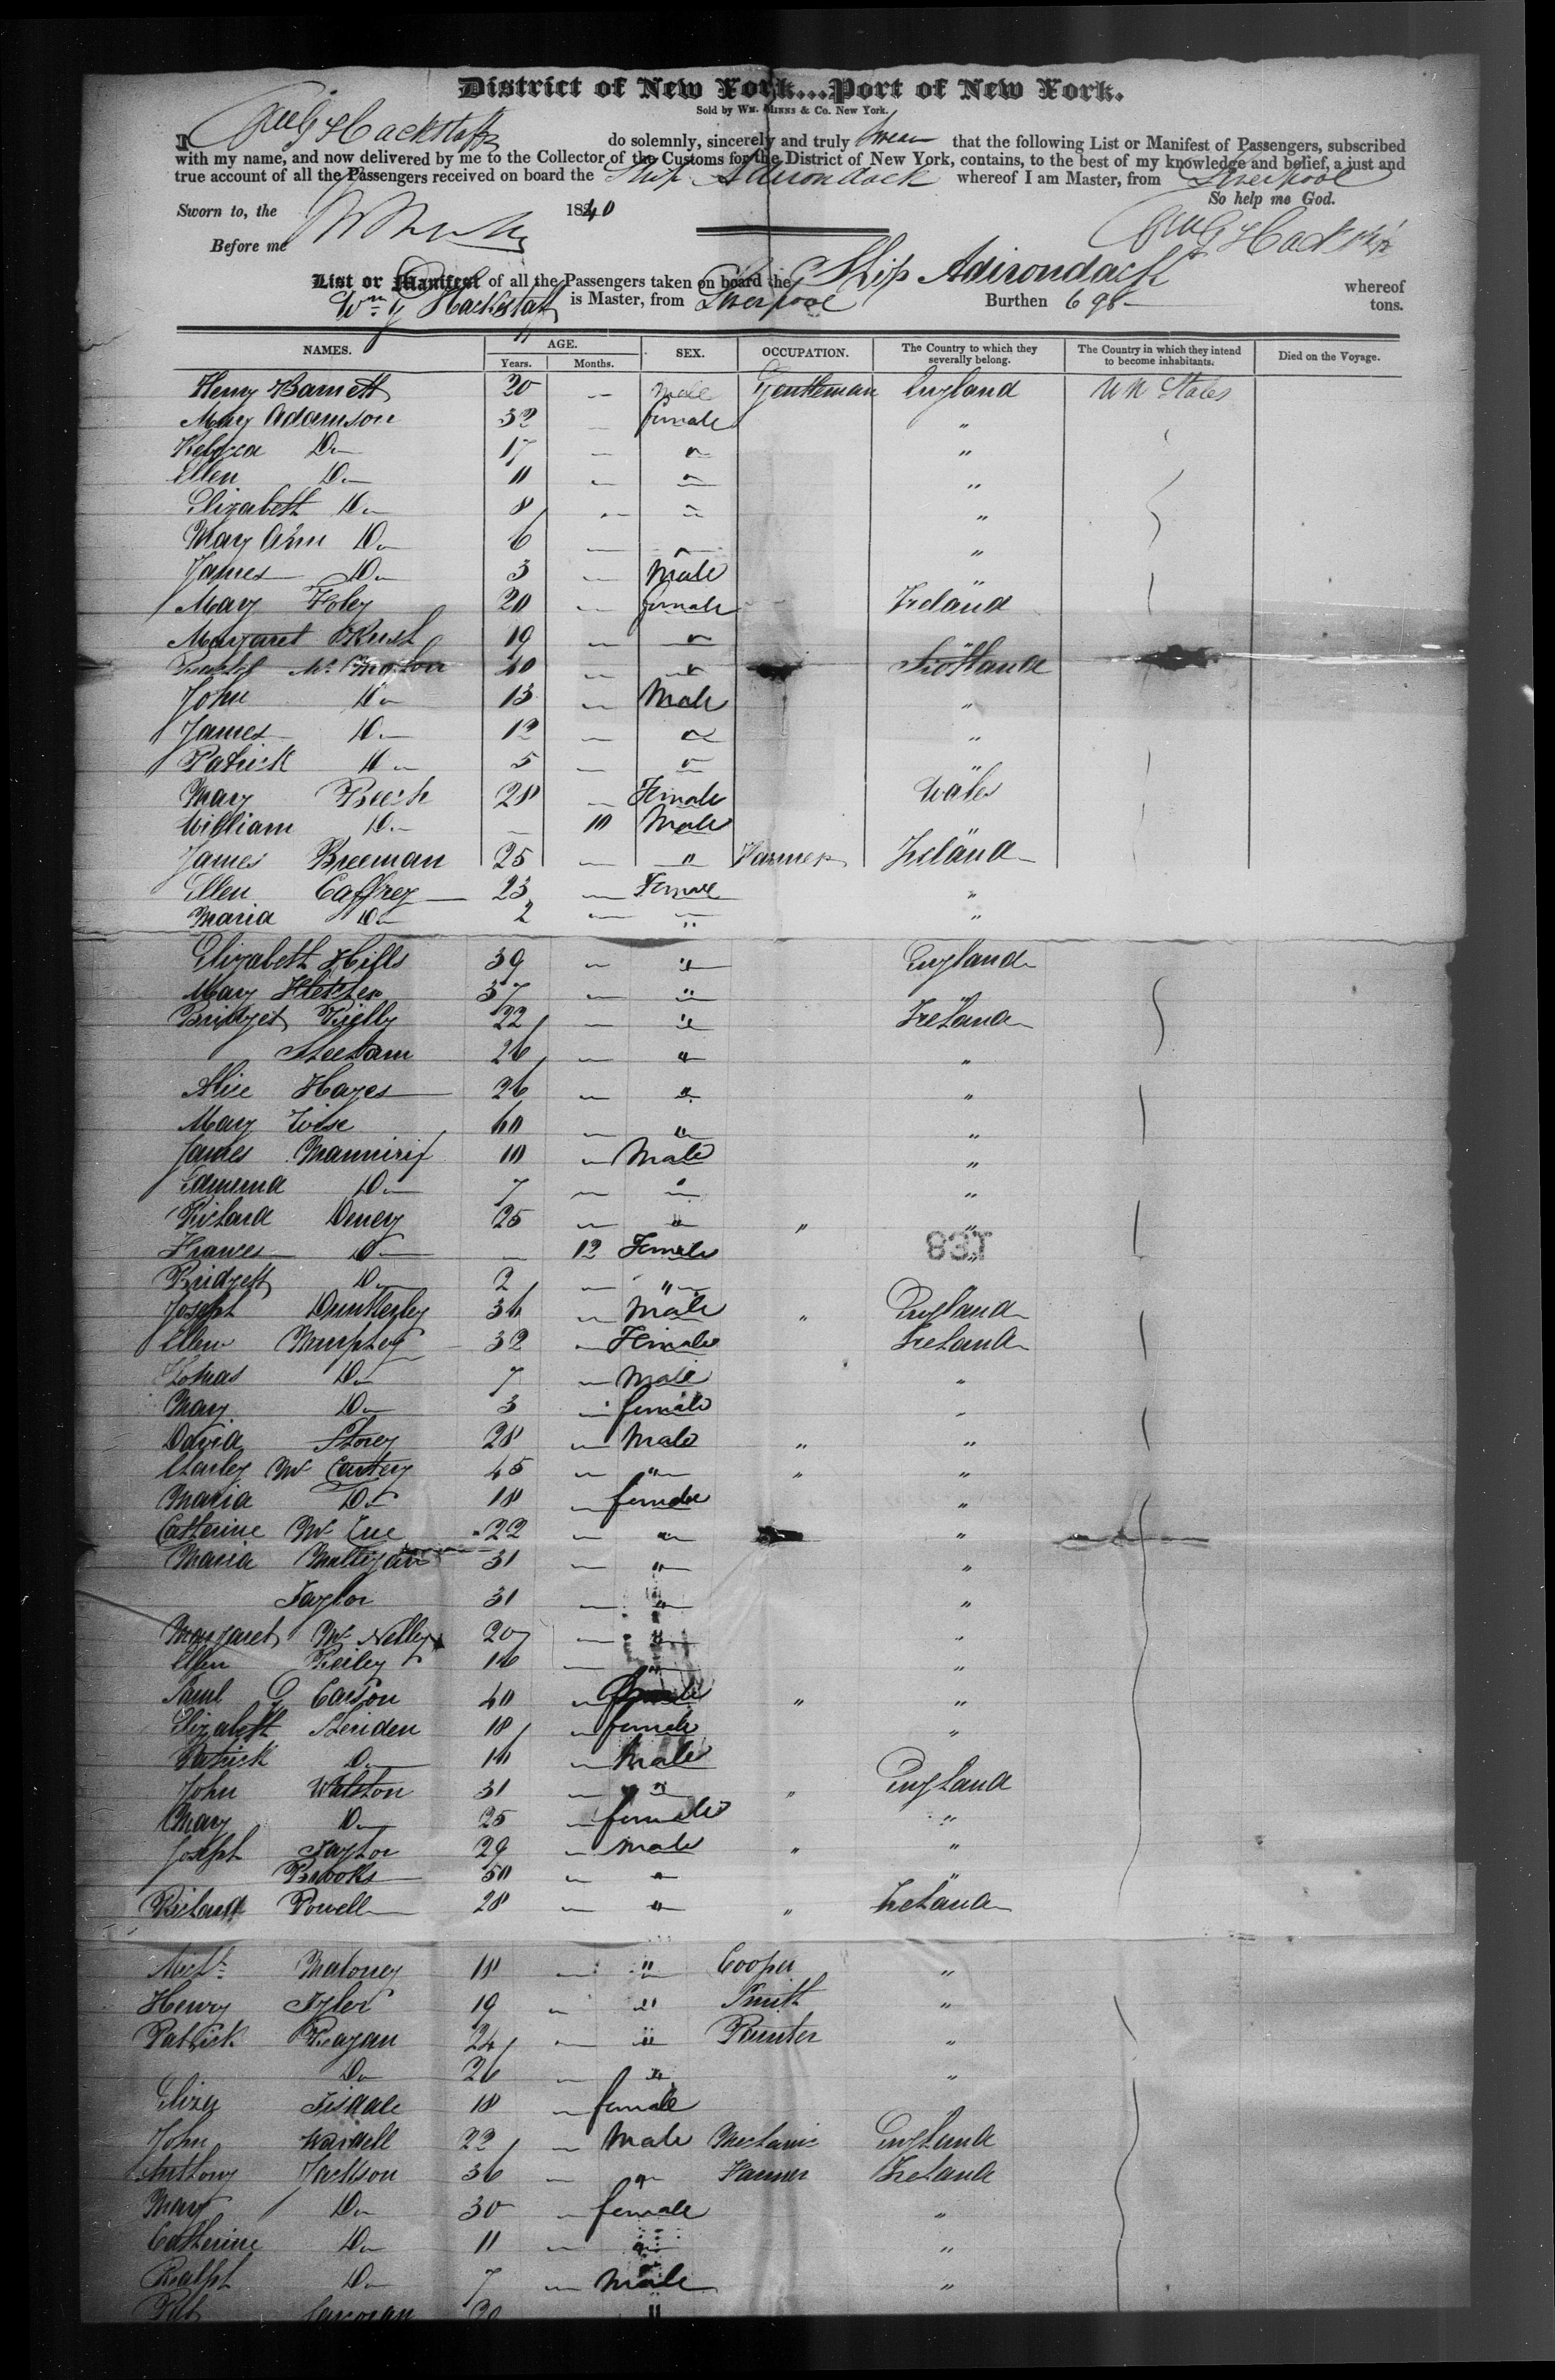 District of New York....Port of New York.
Sold by Wm. Minns & Co. New York.
I Wm G Hackstaff do solemnly, sincerely and truly swear that the following List or Manifest of Passengers, subscribed
with my name, and now delivered by me to the Collector of the Customs for the District of New York, contains, to the best of my knowledge and belief, a just and
true account of all the Passengers received on board the Ship Adirondack whereof I am Master, from Liverpool
So help me God.
Sworn to, the 1840
Wm G Hackstaff
Before me
List or Manifest of all the Passengers taken on board the Ship Adirondack whereof
Wm G Hackstaff is Master, from Liverpool Burthen 698 tons.
NAMES. AGE. Years. Months. SEX. OCCUPATION. The Country to which they severally belong. The Country in which they intend to become inhabitants. Died on the Voyage.
Henry Barnett 20 — Male Gentleman England Un States
Mary Adamson 32 — female "
Do 17 — " "
Ellen Do 11 — " "
Elizabeth Do 8 — " "
Mary Ann Do 6 — " "
James Do 3 — Male "
Mary Foley 20 — female Ireland
Margaret 19 — "
Mc 40 — " Scotland
John Do 13 — Male "
James Do 12 — " "
Patrick Do 5 — " "
Mary Beech 28 — Female Wales
William Do — 10 Male
James Breeman 25 — " Farmer Ireland
Ellen Caffrey 23 — Female "
Maria Do 2 — " "
Elizabeth Hills 39 — " England
Mary Fletcher 37 — "
Bridget Rielly 22 — " Ireland
Sheeham 26 — " "
Alice Hayes 26 — " "
Mary Wise 60 — " "
James Mannirif 10 — Male "
Edmund Do 7 — " "
Richard Deney 25 — " " "
Frances Do — 12 Female "
Bridgett Do 2 — "
Joseph Dunkerley 36 — Male " England
Ellen Murphey 32 — Female Ireland
Thomas Do 7 — Male "
Mary Do 3 — female "
David Storey 28 — Male " "
Charley Mc 45 — " " "
Maria Do 18 — female "
Catherine Mc Cue 22 — " "
Maria Mulligan 31 — " "
Taylor 31 — " "
Margaret Mc Nelley 20 — " "
Ellen Reiley 16 — " "
Saml G Carson 40 — " "
Elizabeth Sheriden 18 — female "
Patrick Do 16 — Male
John Walston 31 — " " England
Mary Do 25 — female "
Joseph Naylor 29 — male " "
Brooks 50 — " "
Richard Powell 28 — " " Ireland
Michl Maloney 18 — " Cooper "
Henry Tyler 19 — " Smith "
Patrick Reagan 24 — " Painter "
Do 26 — " "
Eliza Tisdale 18 — female
John Wardell 22 — Male Mechanic England
Anthony Jackson 36 — " Farmer Ireland
Mary Do 30 — female "
Catherine Do 11 — " "
Ralph Do 7 — male "
Pat 20 "